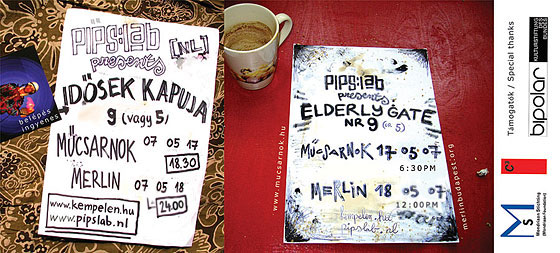 PIPS:lab [NL]
presents
IDŐSEK KAPUJA
9 (vagy 5)
MŰCSARNOK 07 05 17
18.30
MERLIN 07 05 18
24.00
www.kempelen.hu
www.pipslab.nl
belépés
ingyenes
www.mucsarnok.hu
PIPS:lab
presents
ELDERLY GATE
NR 9 (or 5)
MŰCSARNOK 17 05 07
6:30PM
MERLIN 18 05 07
12:00PM
kempelen.hu
pipslab.nl
merlinbudapest.org
Támogatók / Special thanks
bipolar
KULTURSTIFTUNG
DES
BUNDES
C³
MS
Mondriaan Stichting
(Mondriaan Foundation)